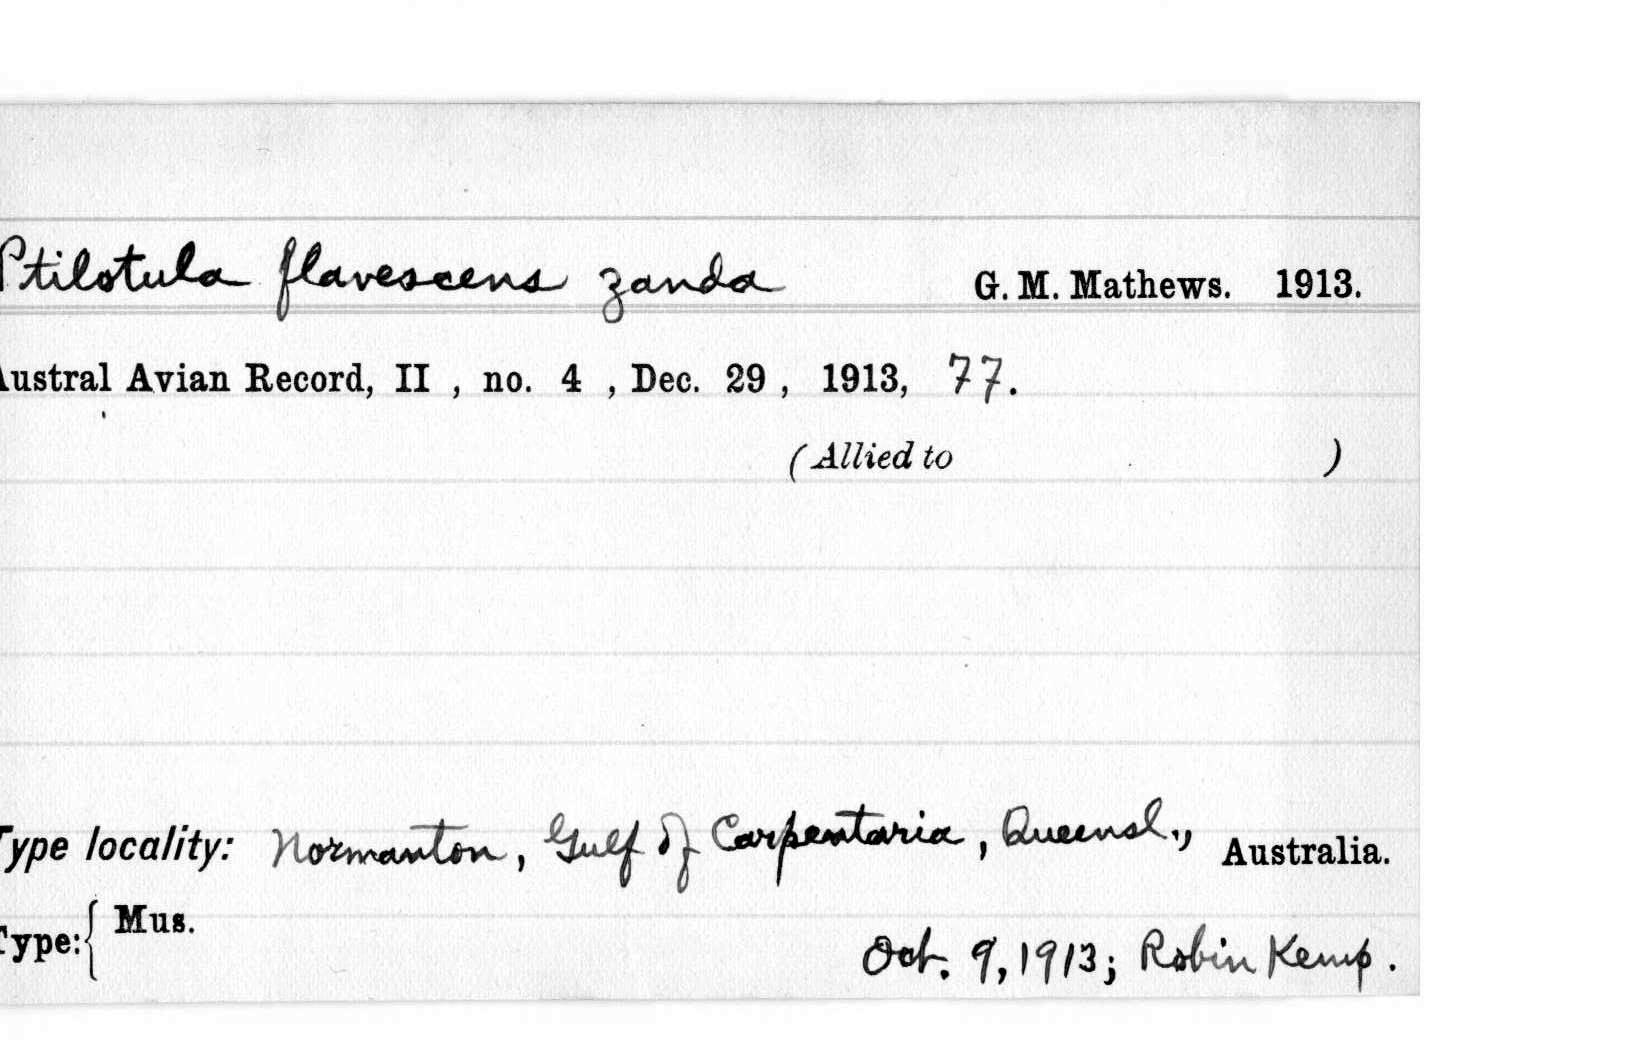 Ptilotula flavescens zanda G. M. Mathews. 1913.
Austral Avian Record, II , no. 4 , Dec. 29 , 1913, 77.
(Allied to )
Type locality: Normanton, Gulf of Carpentaria, Queensl., Australia.
Type: { Mus.
Oct. 9, 1913; Robin Kemp.